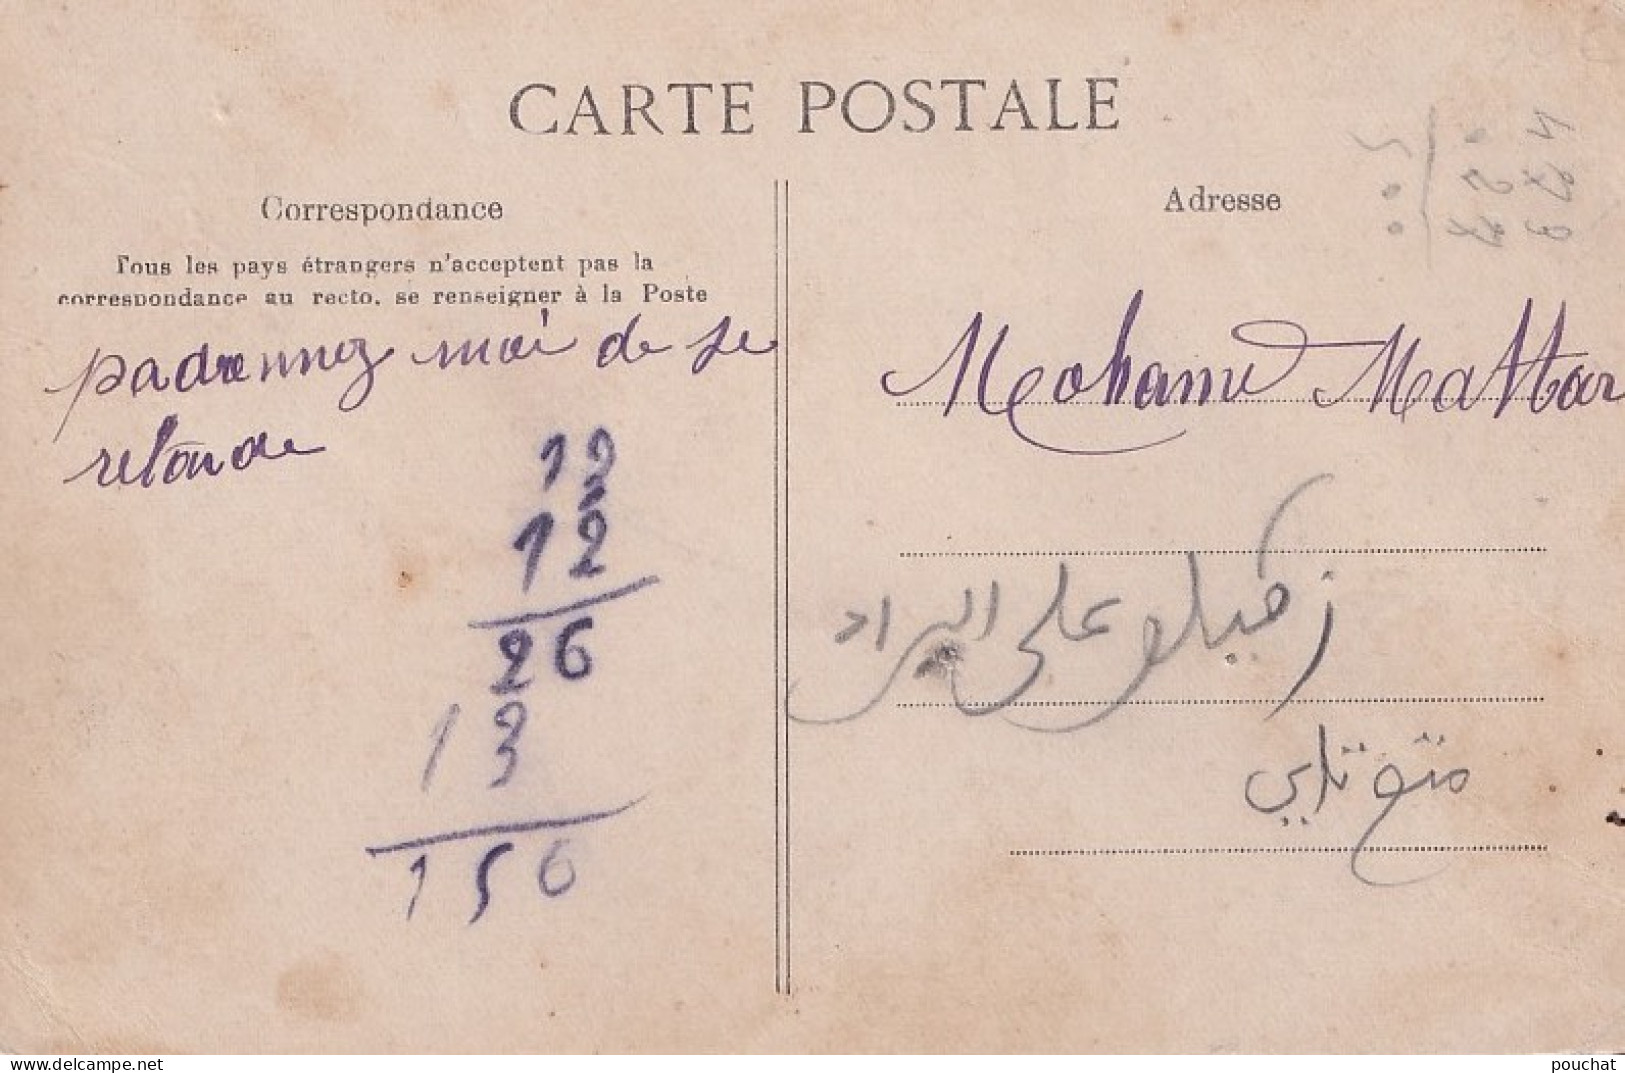 CARTE POSTALE
Correspondance
Tous les pays étrangers n'acceptent pas la
correspondance au recto, se renseigner à la Poste
padronnez moi de se
retarde
12
12
26
13
156
Adresse
Mohamed Mattar
علي البراد
متع
delcampe.net
pouchat